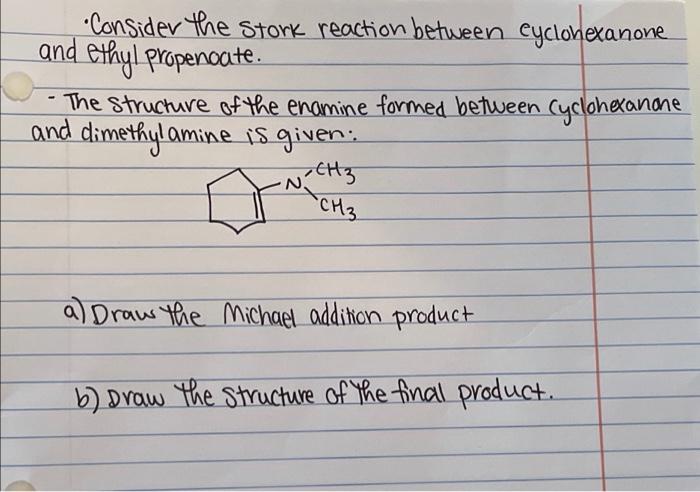 ·Consider the Stork reaction between cyclohexanone
and ethyl propenoate.
- The structure of the enamine formed between cyclohexanone
and dimethylamine is given:
N CH3
CH3
a) Draw the Michael addition product
b) Draw the structure of the final product.